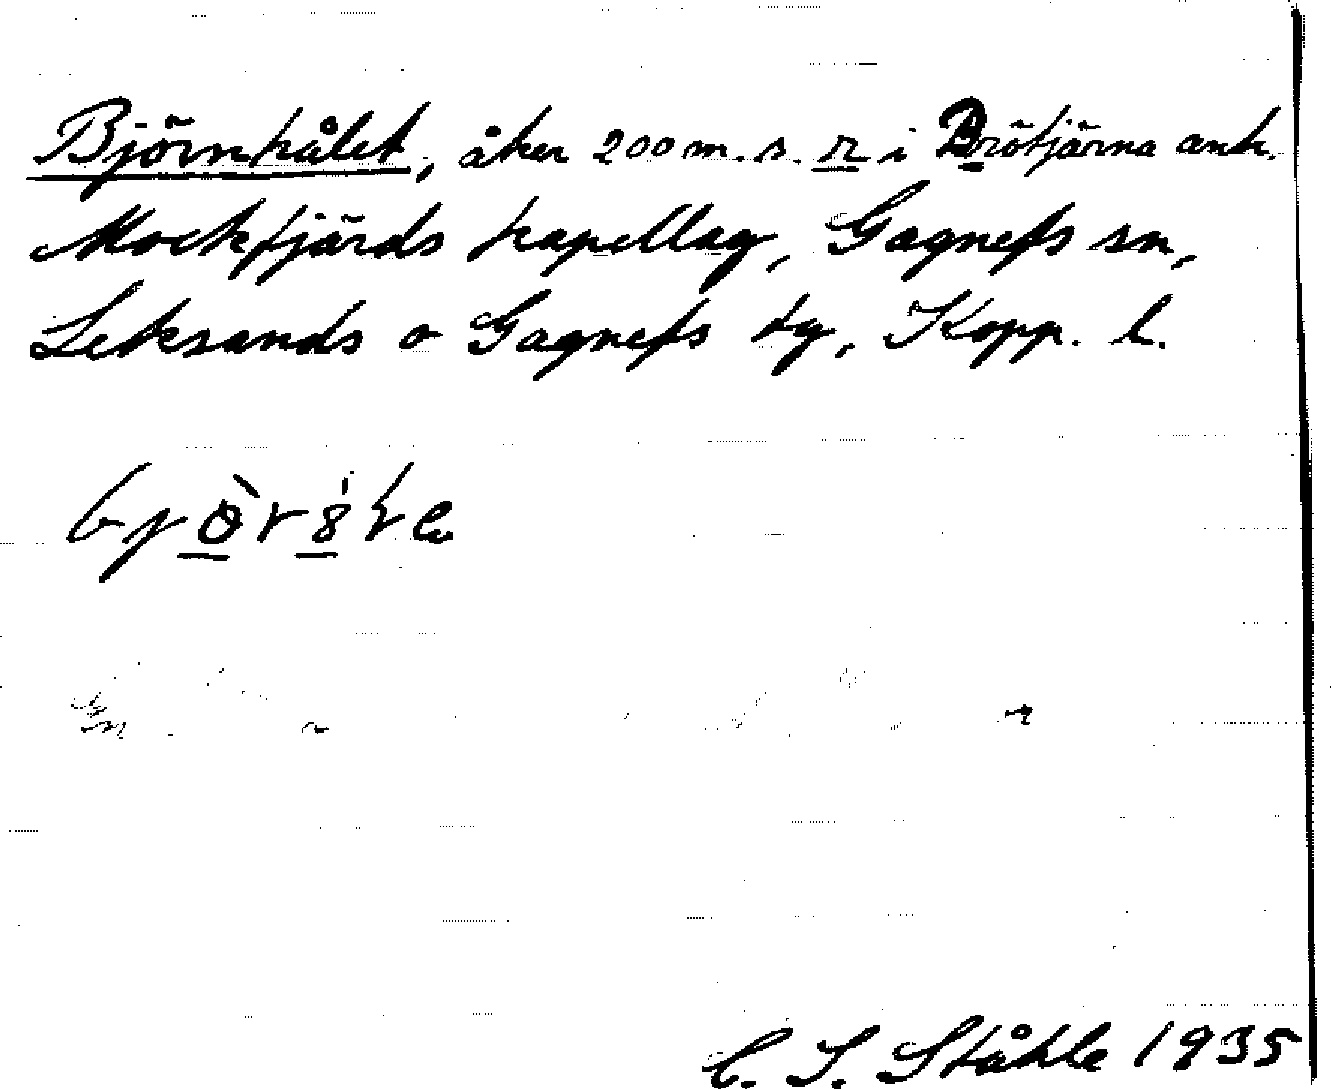 Björnhålet, åker 200 m. s. r i Brötjärna ank.
Mockfjärds kapellag, Gagnefs sn,
Leksands o Gagnefs tg, Kopp. l.
C. I. Ståhle 1935